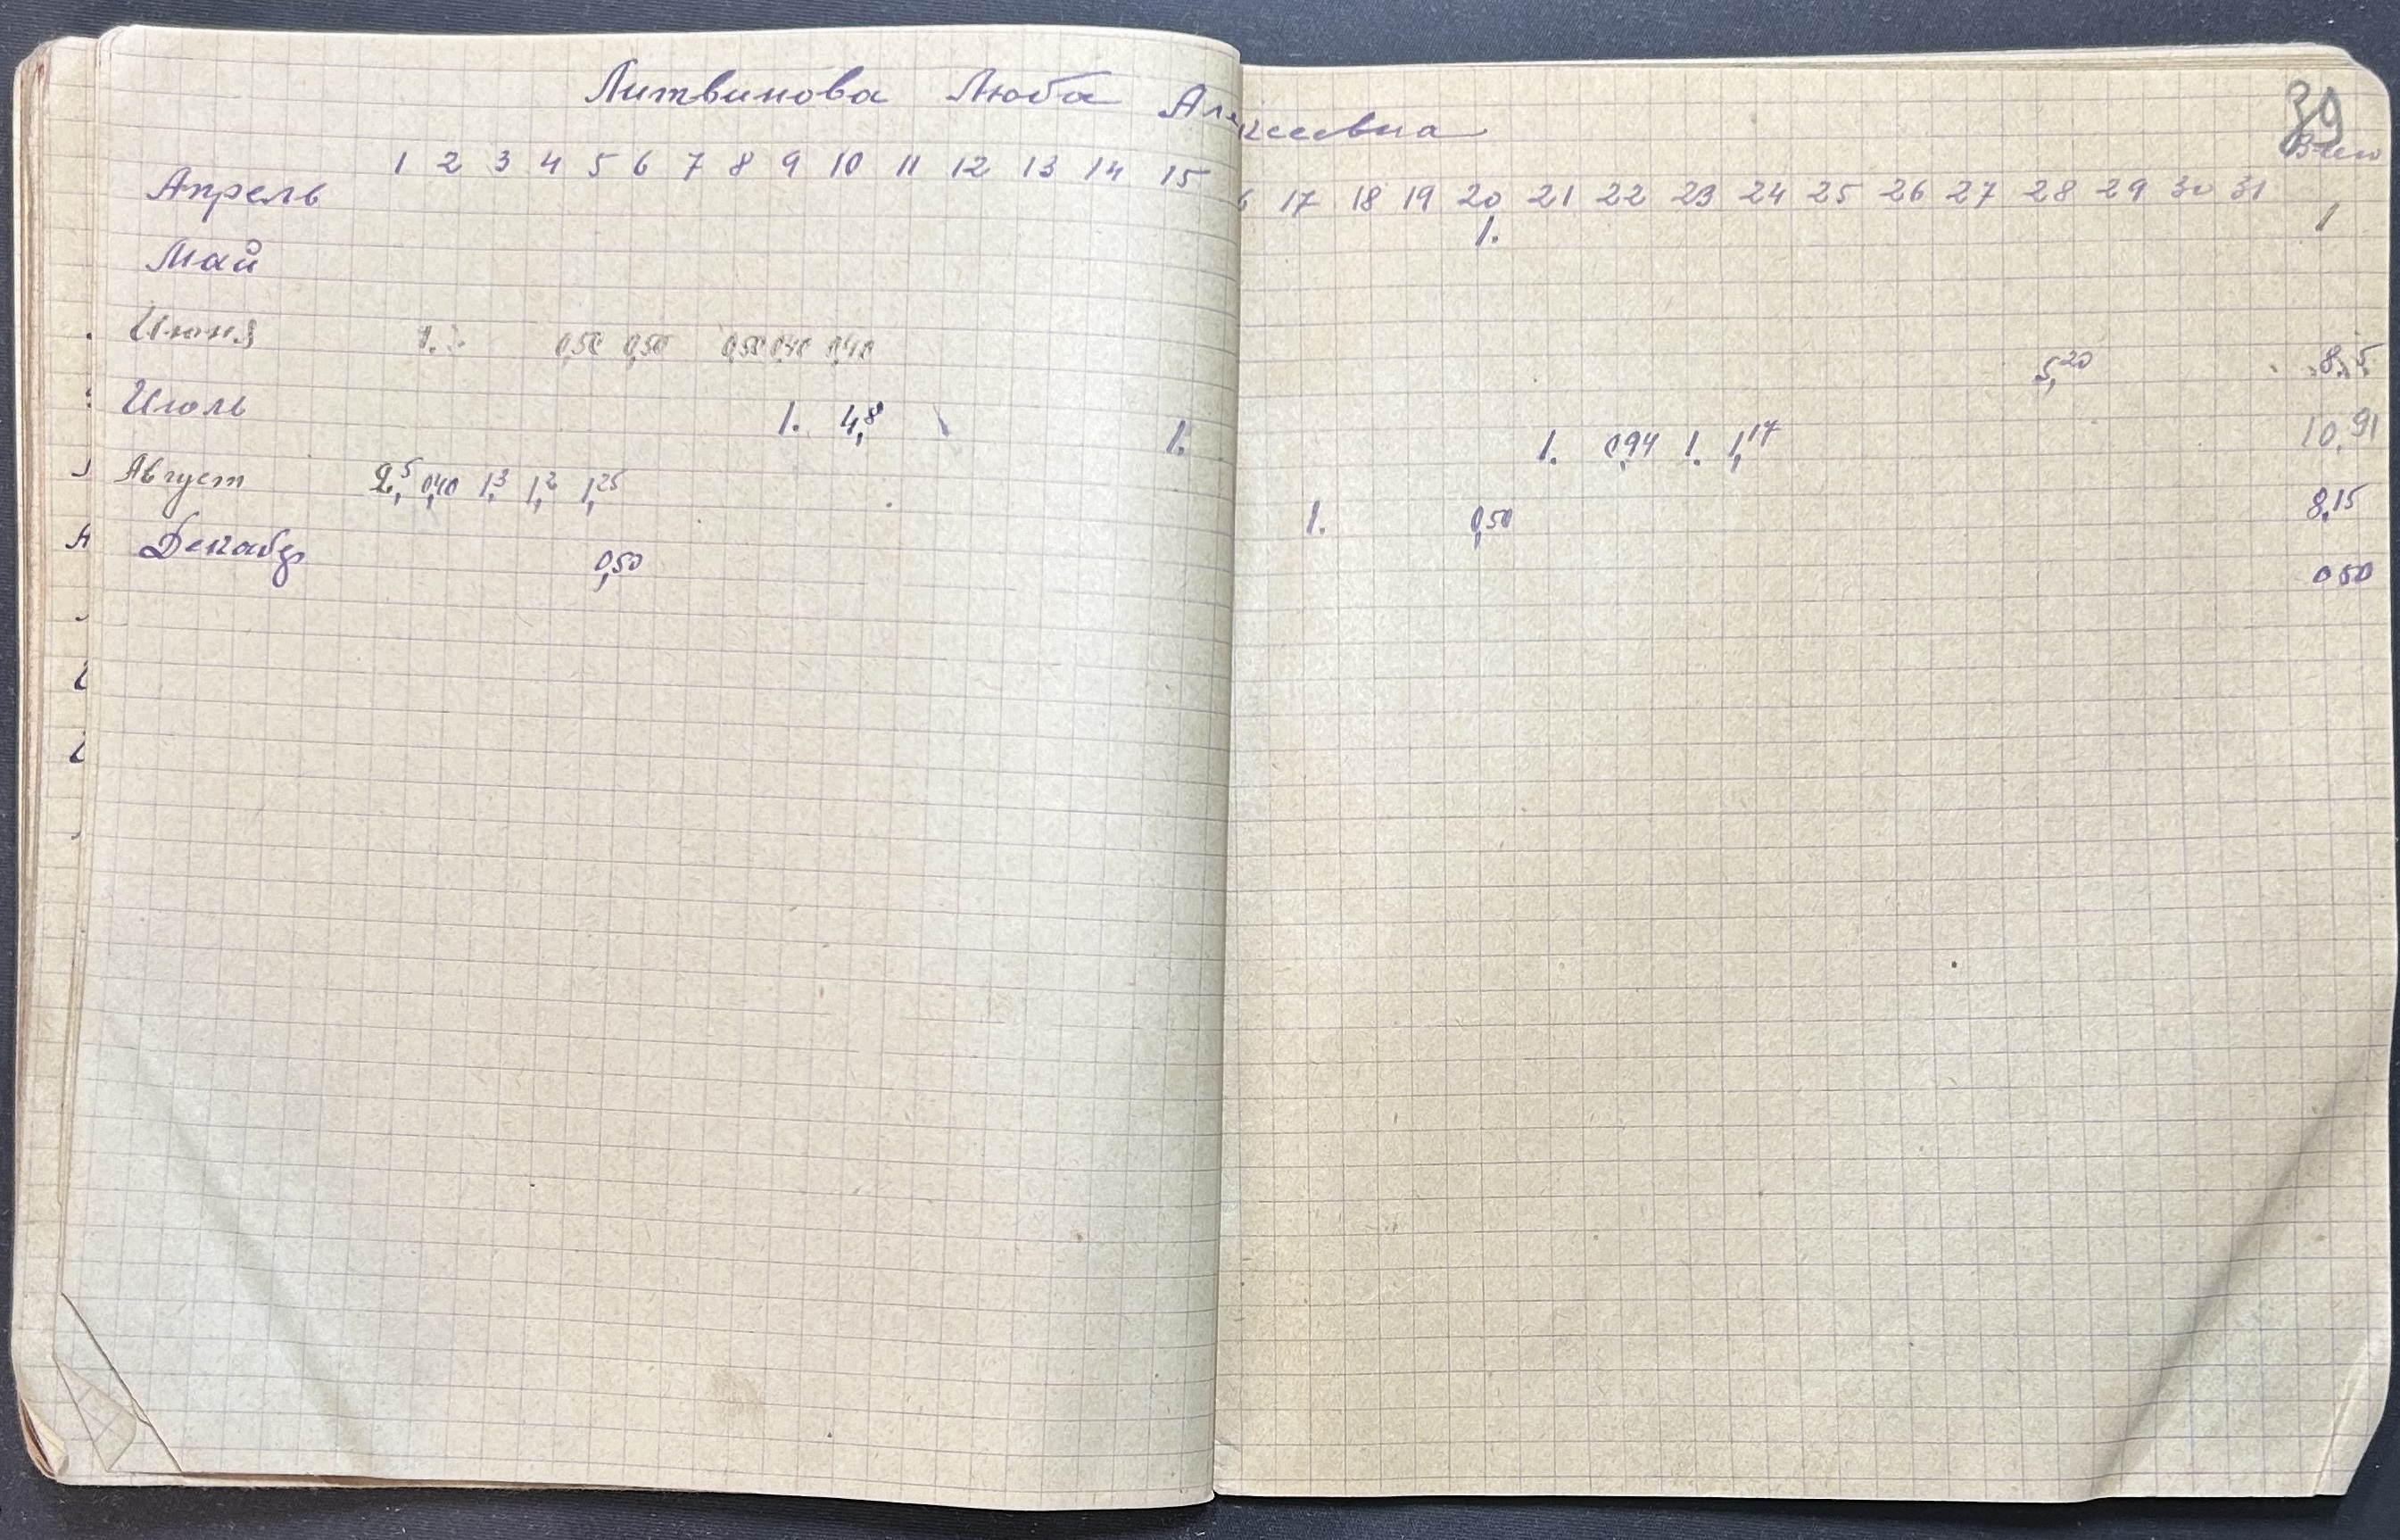 39
Литвинова Люба Алексеевна
1 2 3 4 5 6 7 8 9 10 11 12 13 14 15 6 17 18 19 20 21 22 23 24 25 26 27 28 29 30 31
Апрель 1. 1
Май
Июня 1. 0,50 0,50 0,50 0,40 0,40 5,20 8,5
Июль 1. 4,8 1. 1. 0,94 1. 1,17 10,91
Август 2,5 0,40 1,3 1,2 1,25 1. 0,50 8,15
Декабр 0,50 0 50